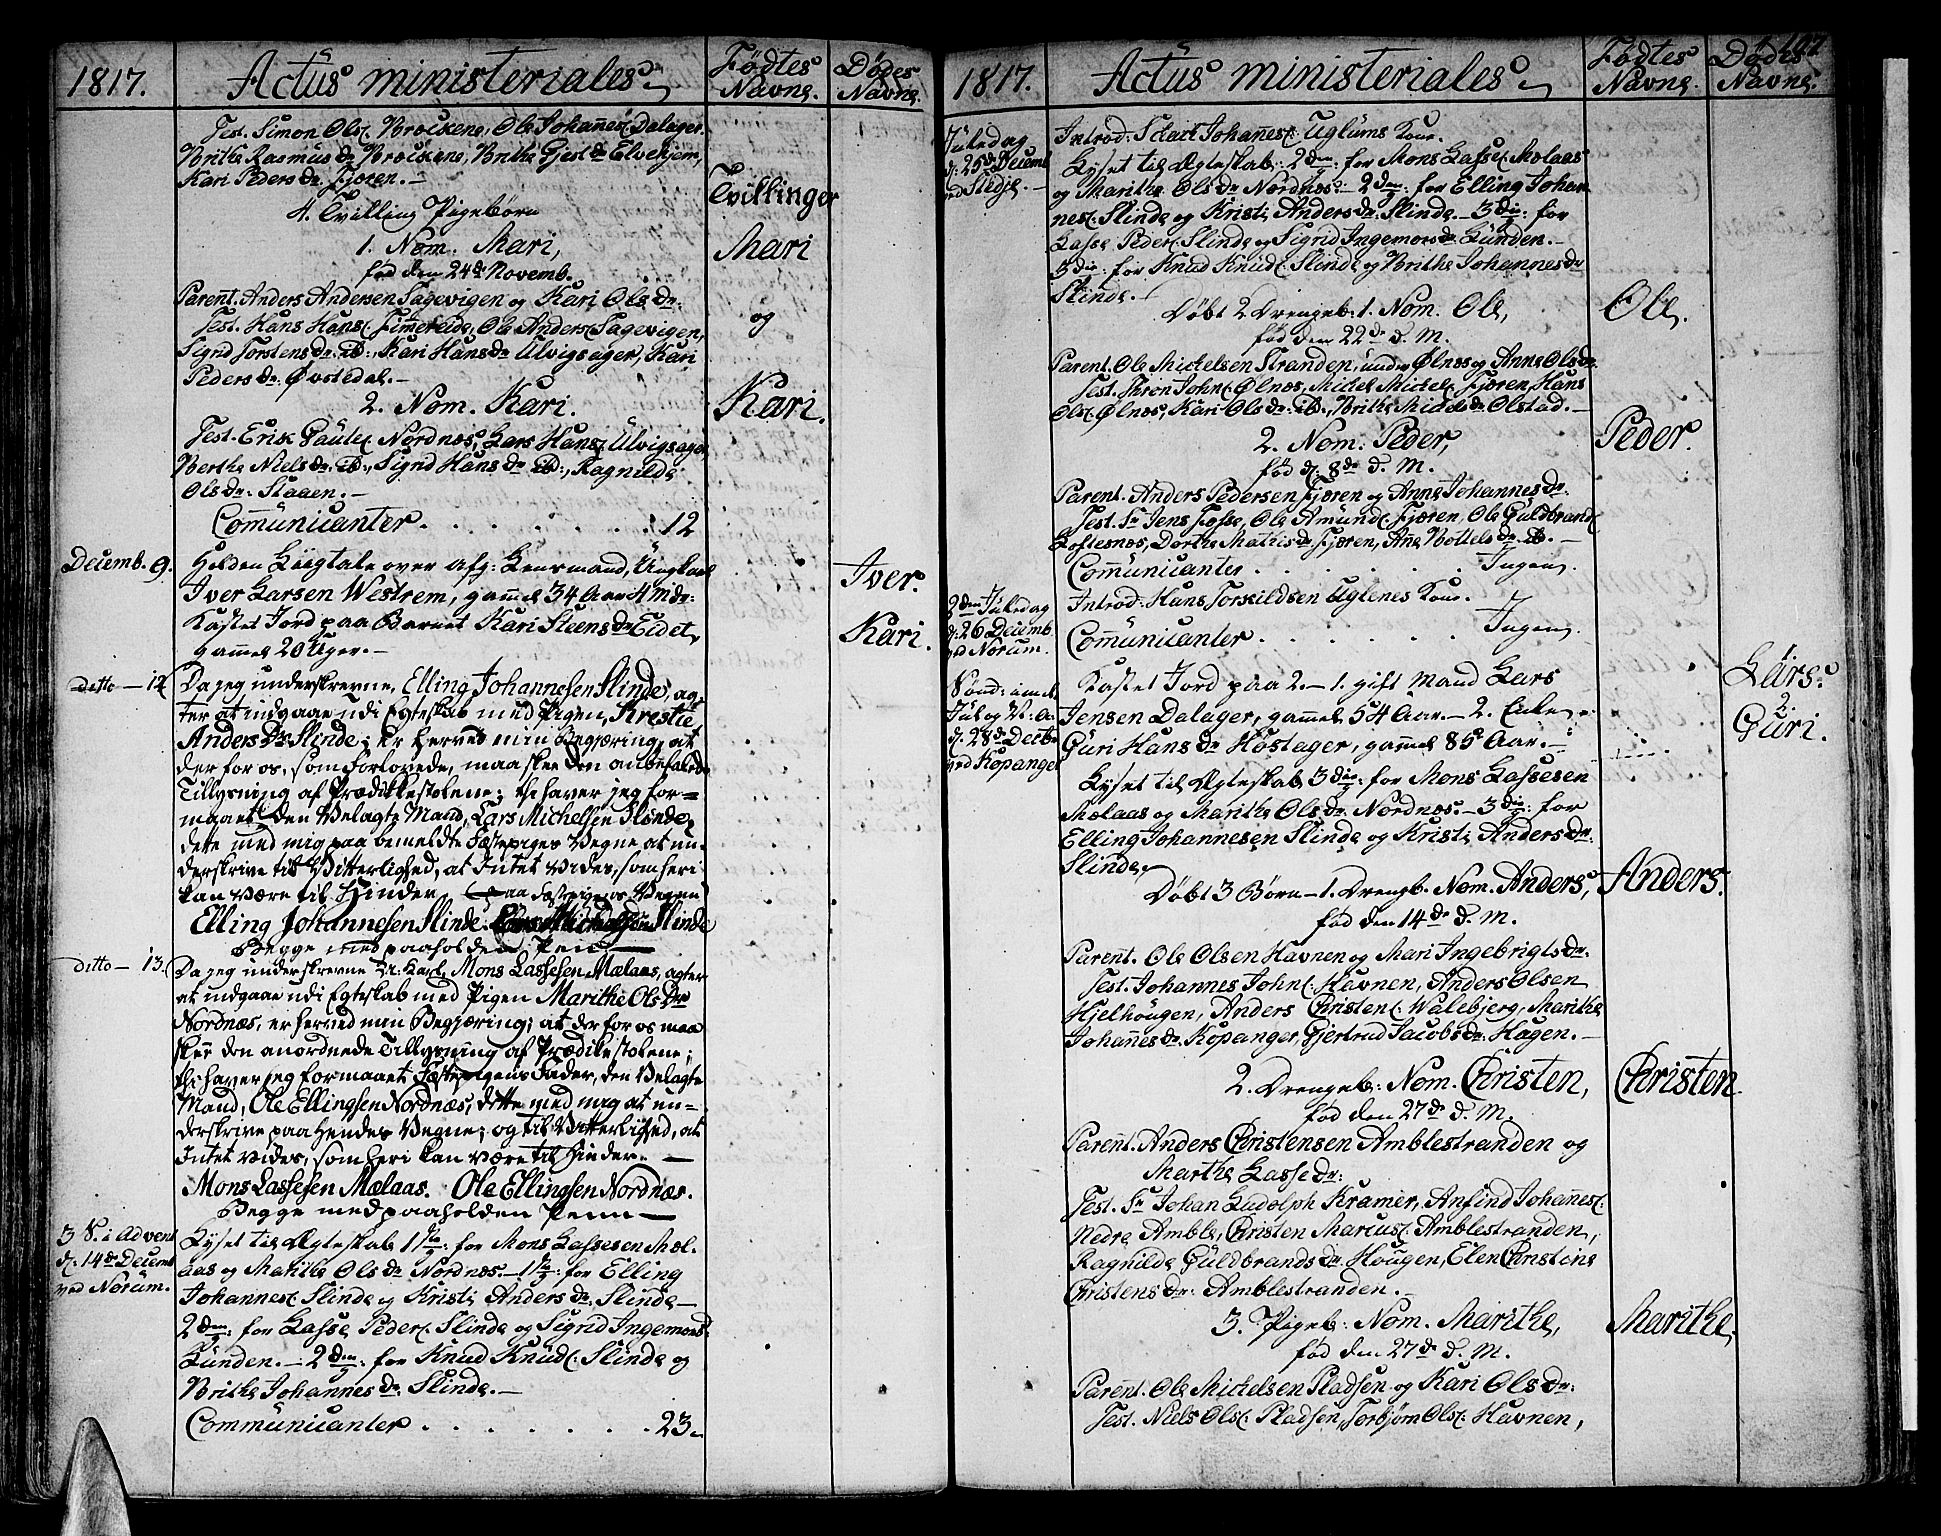 1817.
Actus ministeriales
Fødtes Navne.
Dødes Navne.
Test. Simon Ols: Ole Johannes: Dalager.
Brithe Rasmus dr Brithe Gjest dr Elvekjem,
Kari Peders dr Fjæren.—
4. Tvilling Pigebørn
Tvillinger
1. Nom. Mari,
Mari
fød den 24de Novemb.
Parent. Anders Andersen Sagevigen og Kari Ols dr:
og
Test. Hans Hans: Fimreide, Ole Anders: Sagevigen,
Sigrid Torstens dr: ib:, Kari Hans dr Ulvigsager, Kari
Peders dr: Øvstedal.—
2. Nom. Kari.
Kari.
Test. Erik Nordnæs, Lars Hans: Ulvigsager,
Berthe Niels dr: ib:, Sigrid Hans dr ib:, Ragnilde
Ols dr: Staaen.—
Communicanter . . . . . . . 12
Decemb. 9.
Holden Liigtale over afg: Lensmand, Ungkarl
Iver Larsen Westrem, gammel 34 Aar 4 Mdr:
Iver.
Kastet Jord paa Barnet Kari Steens dr Eidet,
Kari.
gammel 20 Uger.—
ditto — 12
Da jeg underskrevne, Elling Johannesen Slinde, ag-
ter at indgaae udi Egteskab med Pigen, Krestie
Anders Dr Slinde; er herved min Begjæring, at
der for os, som forlovede, maa skee den anbefalede
Tillysning af Prædikkestolene; thi haver jeg for-
maaet den Velagte Mand, Lars Michelsen Slinde,
dette med mig paa bemeldte Fæstepiges Vegne at un-
derskrive til Vitterlighed, at Intet vides, som heri
kan være til Hinder.
Elling Johannesen Slinde. Slinde
Begge med paaholden Pen —
ditto — 13.
Da jeg underskrevne Mons Lassesen Mælaas, agter
at indgaae udi Egteskab med Pigen Marithe Ols Dr
Nordnæs, er herved min Begjæring; at der for os maa
skee den anordnede Tillysning af Prædikestolene;
thi haver jeg formaaet Fæstepigens Fader, den Velagte
Mand, Ole Ellingsen Nordnæs, dette med mig at un-
derskrive paa Hendes Vegne; og til Vitterlighed, at
Intet vides, som heri kan være til Hinder.—
Mons Lassesen Mælaas. Ole Ellingsen Nordnæs.
Begge med paaholden Penn—
3 S. i Advent
d: 14de Decemb
ved Norum.
Lyset til Ægteskab 1ste: for Mons Lassesen Mol-
aas og Marithe Ols dr Nordnæs.— 1ste: for Elling
Johannes: Slinde og Kristi Anders dr. Slinde—
2den: for Lasse Peder: Slinde og Sigrid Ingemors
Lunden.— 2den: for Knud Knud: Slinde og
Brithe Johannes dr. Slinde.—
Communicanter . . . . . . . 23.
107
1817.
Actus ministeriales
Fødtes Navne.
Dødes Navne.
Juledag
d: 25de Decemb
ved Stedje.—
Introd: Johannes: Uglums Kone.
Lyset til Ægteskab: 2den: for Mons Lasse: Molaas
og Marithe Ols dr Nordnæs.— 2den: for Elling Johan
nes: Slinde og Kristi Anders dr. Slinde.— 3die: for
Lasse Peder: Slinde og Sigrid Ingemors dr: Lunden.—
3die: for Knud Knud: Slinde og Brithe Johannes dr
Slinde.—
Døbt 2 Drengeb: 1. Nom. Ole,
Ole.
fød den 22de d. M.
Parent. Ole Mickelsen Stranden, under Ølnæs og Anne Ols dr.
Test. John: Ølnæs, Mickel Mickel: Fjæren, Hans
Ols: Ølnæs, Kari Ols dr: ib:, Brithe Mickels dr Olstad.—
2. Nom. Peder,
Peder.
fød d: 8de d. M.
Parent. Anders Pedersen Fjæren og Anne Johannes dr:
Test. Sr Jens Fosse, Ole Amund: Fjæren, Ole Guldbrand:
Loftesnæs, Dorthe Mathis dr Fjæren, Ane Bottels dr: ib.—
Communicanter . . . . . . Ingen.
2den Juledag
d: 26 Decemb.
ved Norum.
Introd: Hans Torkildsen Uglenes Kone.
Communicanter . . . . . . Ingen.
Sønd: imel
Jul og N: A.
d: 28de Decbr
ved Kopanger
Kastet Jord paa 2.— 1. gift Mand Lars
1. Lars.
Jensen Dalager, gammel 54 Aar.— 2. Enke
2. Guri.
Guri Hans dr Høstager, gammel 85 Aar.—
Lyset til Ægteskab 3die: for Mons Lassesen
Molaas og Marithe Ols dr. Nordnæs.— 3die: for
Elling Johannesen Slinde og Kristi Anders dr:
Slinde.
Døbt 3 Børn— 1. Drengb. Nom. Anders,
Anders.
fød den 14de d. M.
Parent. Ole Olsen Havnen og Mari Ingebrigts dr.
Test. Johannes John: Havnen, Anders Olsen
Hjelhougen, Anders Christen: Walebjerg, Marithe
Johannes dr. Kopanger, Gjertrud Jacobs dr: Hagen.—
2. Drengeb: Nom. Christen,
Christen
fød den 27de d. M.
Parent. Anders Christensen Amblestranden og
Marthe Lasse dr:
Test. Sr Johan Ludolph Kramer, Anfind Johannes:
Nedre Amble, Christen Marcus: Amblestranden,
Ragnilde Guldbrands dr. Hougen, Elen Christine
Christens dr: Amblestranden.—
3. Pigeb: Nom. Marithe,
Marithe.
fød den 27de d. M.
Parent. Ole Mickelsen Pladsen og Kari Ols dr:
Test. Niels Ols: Pladsen, Torbjørn Ols: Havnen,